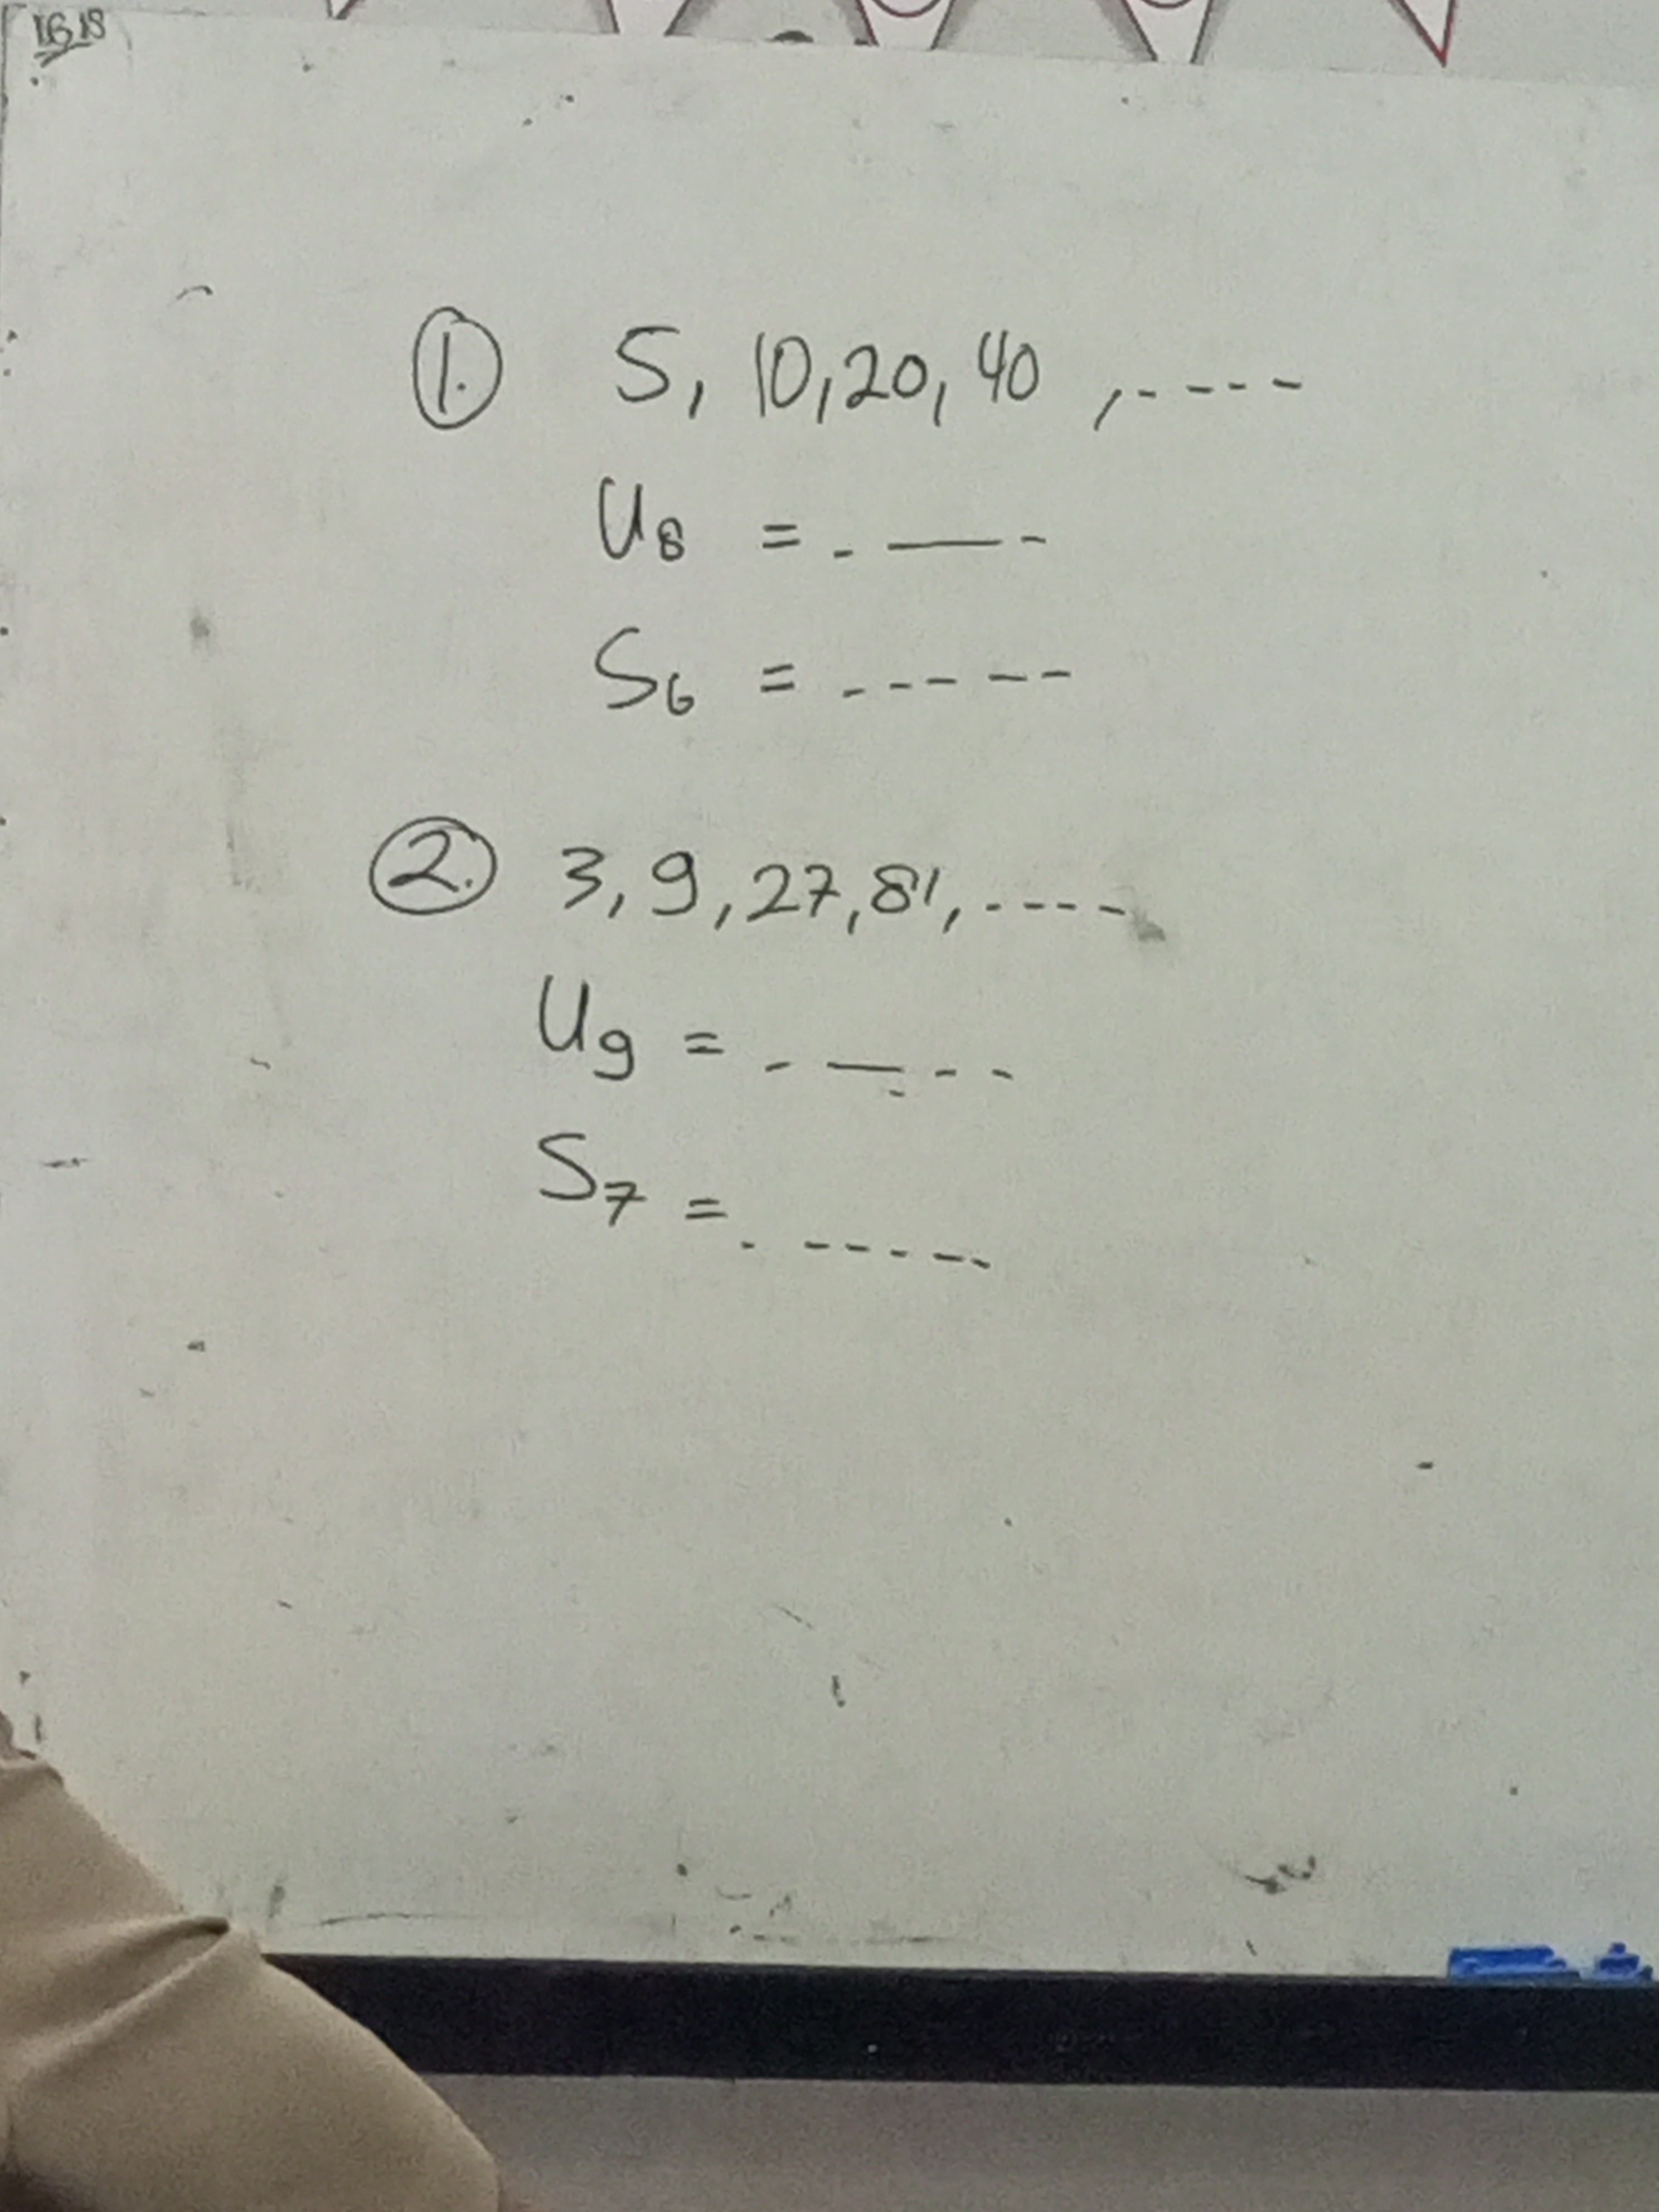 16 18
1. 5, 10, 20, 40, .----
U8 = .---
S6 = .-----
2. 3, 9, 27, 81, .----
U9 = ----
S7 = .-----